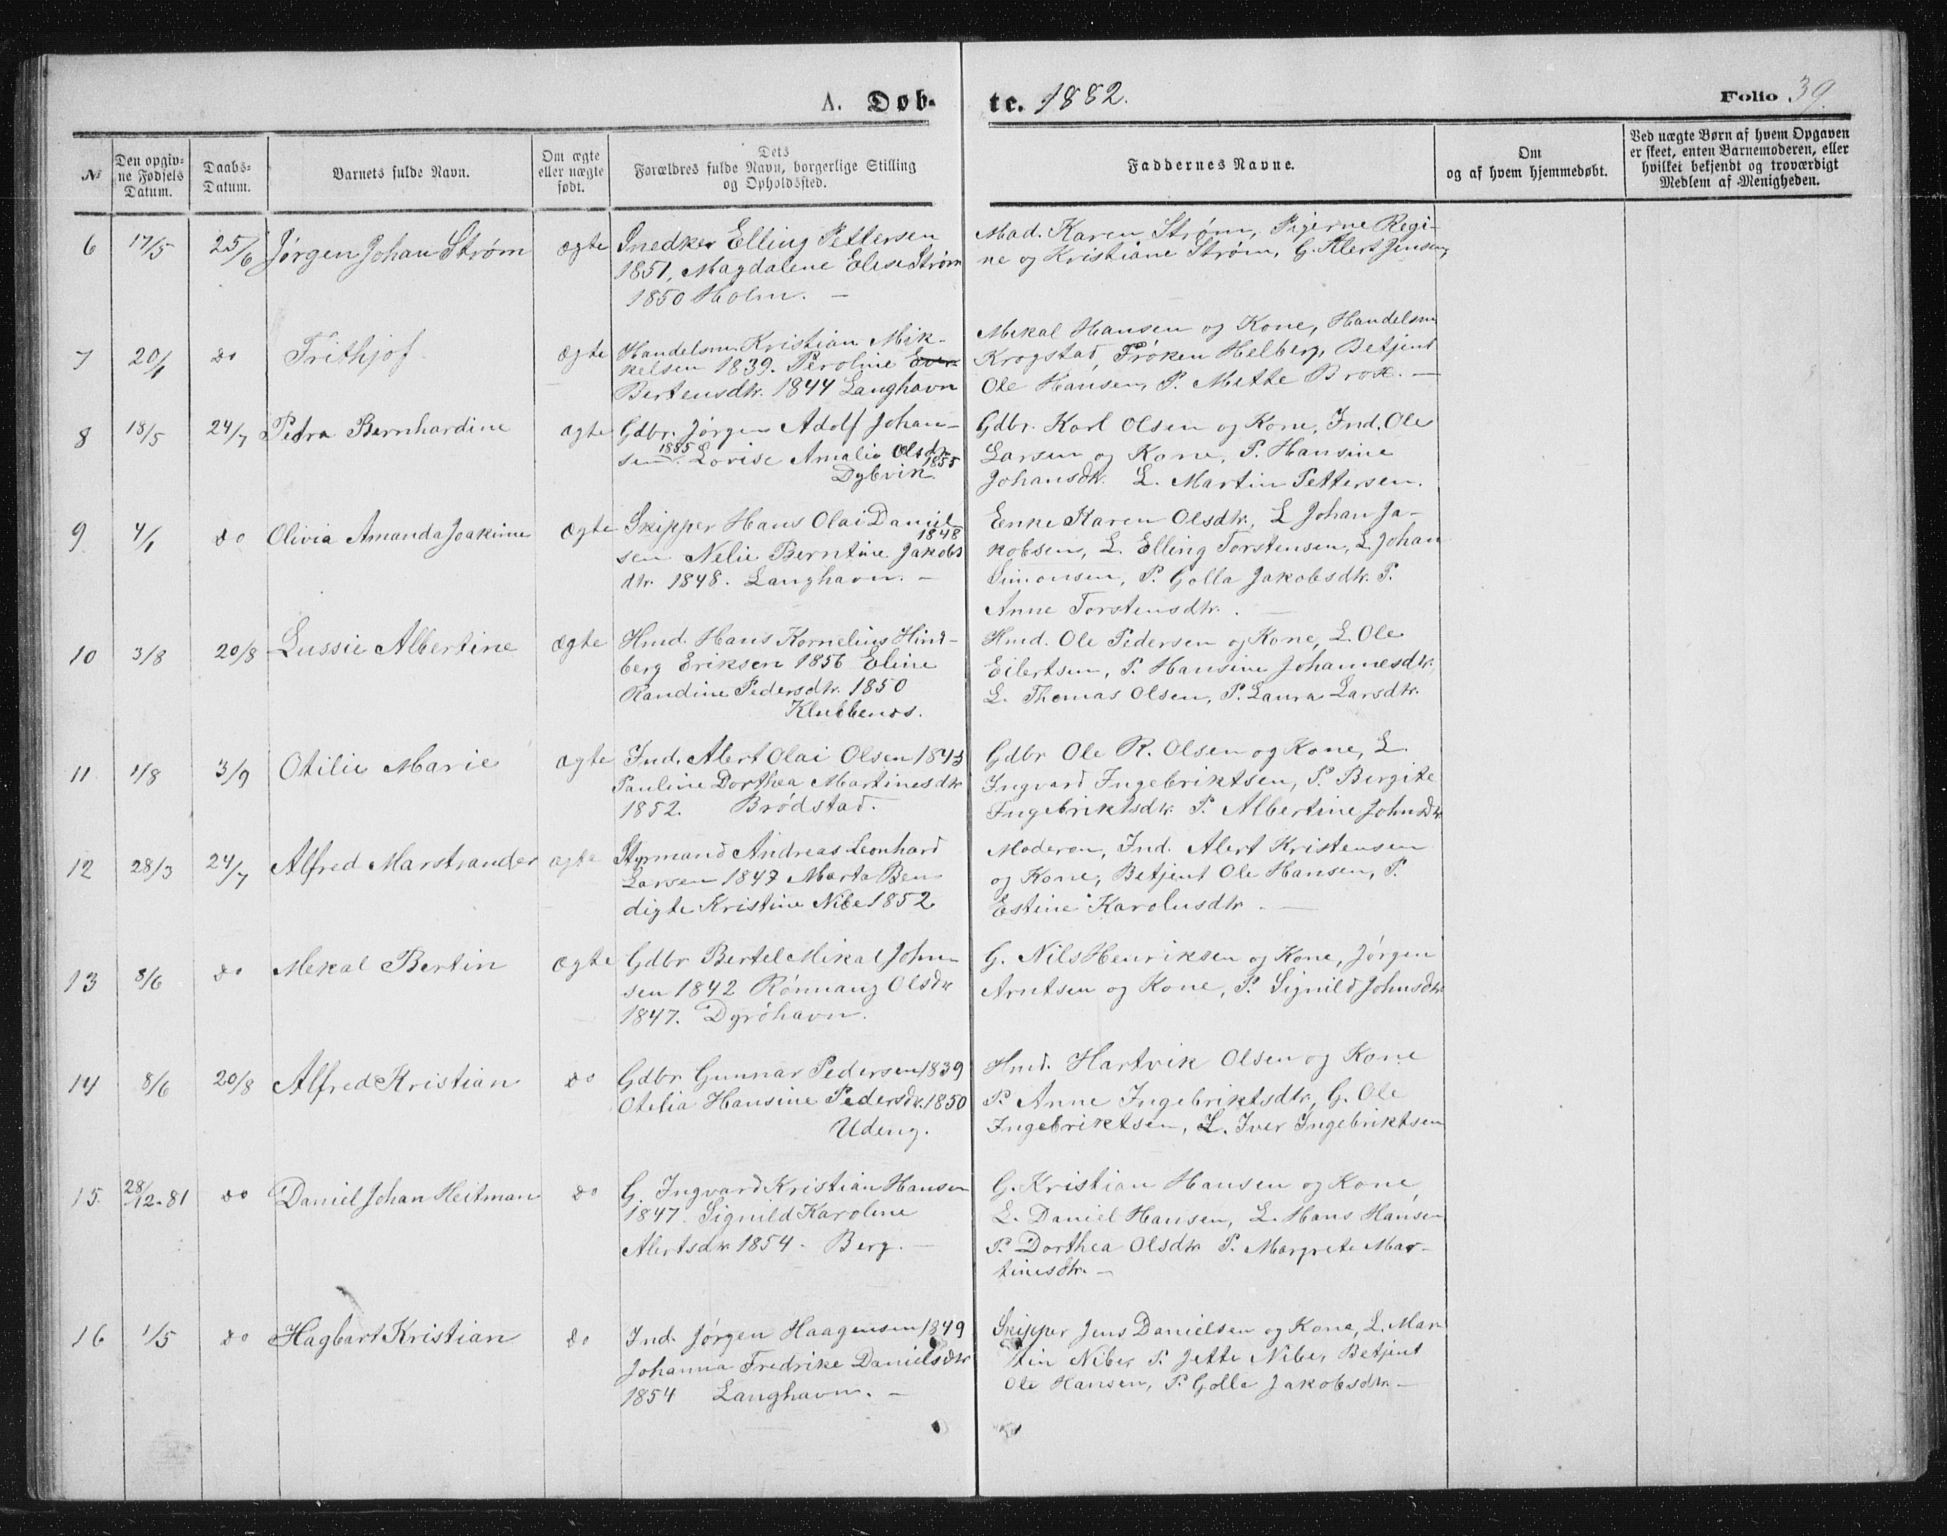 A. Døb- te. 1882. Folio 39.
№
Den opgiv-
ne Fødsels
Datum.
Daabs-
Datum.
Barnets fulde Navn.
Om ægte
eller uægte
født.
Dets
Forældres fulde Navn, borgerlige Stilling
og Opholdssted.
Faddernes Navne.
Om
og af hvem hjemmedøbt.
Ved uægte Børn af hvem Opgaven
er skeet, enten Barnemoderen, eller
hvilket bekjendt og troværdigt
Medlem af Menigheden.
6 17/5 25/6 Jørgen Johan Strøm ægte
Snedker Elling Pettersen
1851, Magdalene Elise Strøm
1850 Holm. –
Mad. Karen Strøm, Pigerne Regi-
ne og Kristiane Strøm, G. Alert Jensen,
7 20/1 do Frithjof ægte
Handelsm. Kristian Mik-
kelsen 1839. Peroline
Bertensdtr. 1844 Langhavn
Mekal Hansen og Kone, Handelsm
Krogstad, Frøken Helberg, Betjent
Ole Hansen, P. Mette Brox. –
8 18/5 24/7 Petra Bernhardine ægte
Gdbr. Jørgen Adolf Johan-
sen 1855 Lovise Amalie Olsdtr
1855
Dybvik.
Gdbr. Karl Olsen og Kone, Ind. Ole
Larsen og Kone, P. Hansine
Johansdtr. L. Martin Pettersen.
9 4/1 do Olivia Amanda Joakime ægte
Skipper Hans Olai Daniel-
1848
sen Nelie Berntine Jakobs
dtr. 1848. Langhavn. –
Enke Karen Olsdtr, L Johan Ja-
kobsen, L. Elling Torstensen, L Johan
Simonsen, P. Golla Jakobsdtr. P.
Anne Torstensdtr. –
10 3/8 20/8 Lussie Albertine ægte
Hmd. Hans Kornelius Hind-
berg Eriksen 1856 Eline
Randine Pedersdtr. 1850
Klubbenes.
Hmd. Ole Pedersen og Kone, L. Ole
Eilertsen, P. Hansine Johannesdtr,
L. Thomas Olsen, P. Laura Larsdtr.
11 1/8 3/9 Otilie Marie ægte
Ind. Alert Olai Olsen 1843
Pauline Dorthea Martinesdtr
1852. Brødstad.
Gdbr Ole R. Olsen og Kone, L.
Ingvard Ingebriktsen, P. Bergite
Ingebriktsdtr. P. Albertine Johnsdtr
12 28/3 24/7 Alfred Marstrander ægte
Styrmand Andreas Leonhard
Larsen 1847 Marta Ben
digte Kristine Nibe 1852
Moderen, Ind. Alert Kristensen
og Kone, Betjent Ole Hansen, P.
Estine Karolusdtr. –
13 8/6 do Mekal Bertin ægte
Gdbr Bertel Mikal John-
sen 1842 Rønnaug Olsdtr
1847. Dyrøhavn.
G. Nils Henriksen og Kone, Jørgen
Arntsen og Kone, P. Signild Johnsdtr
14 8/6 20/8 Alfred Kristian do
Gdbr Gunnar Pedersen 1839
Otelia Hansine Pedersdtr. 1850
Udeng.
Hmd. Hartvik Olsen og Kone
P. Anne Ingebriktsdtr, G. Ole
Ingebriktsen, L. Iver Ingebriktsen
15. 28/12-81 do Daniel Johan Heitman do
G. Ingvard Kristian Hansen
1847. Signild Karoline
Alertsdtr. 1854. Berg. –
G. Kristian Hansen og Kone,
L. Daniel Hansen, L. Hans Hansen
P. Dorthea Olsdtr P. Margrete Mar-
tinesdtr. –
16 1/5 do Hagbart Kristian do
Ind. Jørgen Haagensen 1849
Johanna Fredrike Danielsdtr
1854 Langhavn. –
Skipper Jens Danielsen og Kone, L. Mar
tin Nibe, P. Jette Nibe, Betjent
Ole Hansen, P. Golla Jakobsdtr. –